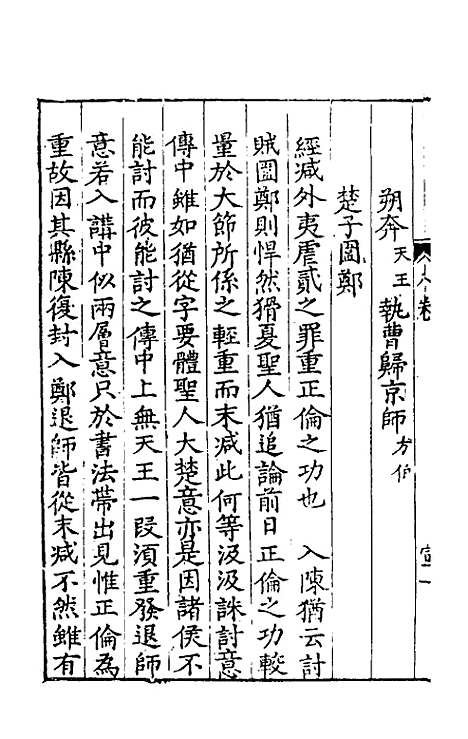 朔奔天王執曹歸京師方伯
楚子圍鄭
經减外夷虐貳之罪重正倫之功也　入陳猶云討
賊圍鄭則悍然猾夏聖人猶追論前日正倫之功較
量於大節所係之輕重而末减此何等汲汲誅討意
傳中雖如猶從字要體聖人大楚意亦是因諸侯不
能討而彼能討之傳中上無天王一段須重發退師
意若入講中似兩層意只於書法帶出見惟正倫為
重故因其縣陳復封入鄭退師皆從末减不然雖有